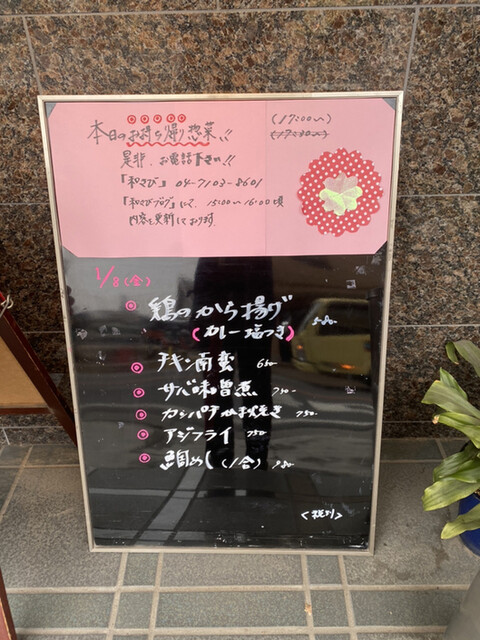 本日のお持ち帰り惣菜!!
(17:00〜)
(17:30〜)
是非、お電話下さい!!
「和さび」 04-7103-8601
「和さびブログ」にて、15:00〜16:00頃
内容を更新しております。
1/8(金)
鶏のから揚げ
(カレー塩つき) 580-
チキン南蛮 650-
サバ味噌煮 750-
カンパチ 焼き 750-
アジフライ 750-
鯛めし(1合) 980-
<税別>